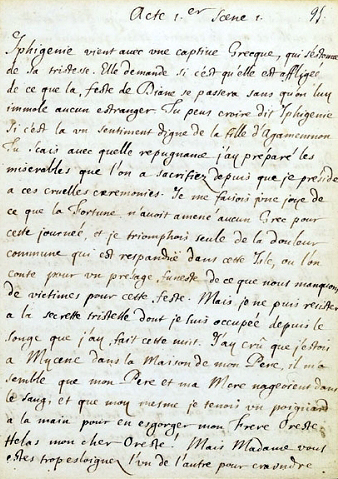 Acte 1.er Scene 1. 95.
Iphigenie vient avec une captive Grecque, qui s'estonne
de sa tristesse. Elle demande si c'est qu'elle est affligée
de ce que la feste de Diane se passera sans qu'on luy
immole aucun estranger. Tu peus croire dit Iphigenie
Si c'est la un sentiment digne de la fille d'Agamemnon
Tu scais avec quelle repugnance j'ay preparé les
miserables que l'on a sacrifiez depuis que je preside
a ces cruelles ceremonies. Je me faisois une joye de
ce que la Fortune n'avoit amené aucun Grec pour
cette journée, et je triomphois seule de la douleur
commune qui est respandue dans cette Isle, ou l'on
conte pour un presage funeste de ce que nous manquons
de victimes pour cette feste. Mais je ne puis resister
a la secrette tristesse dont je suis occupée depuis le
songe que j'ay fait cette nuit. J'ay crû que j'estois
a Mycene dans la Maison de mon Pere, il m'a
semblé que mon Pere et ma Mere nageoient dans
le sang, et que moy mesme je tenois un poignard
a la main pour en esgorger mon Frere Oreste.
Helas mon cher Oreste! Mais Madame vous
estes trop esloignez l'un de l'autre pour craindre